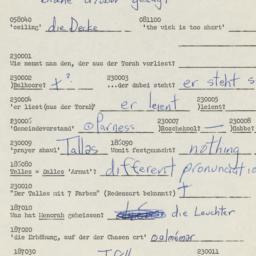 058040 081100
'ceiling' die Decke 'the wick is too short'
230001
Wie nennt man den, der aus der Torah vorliest?
230002 230003
)Balkore? † ? ...der dabei steht? er steht
230004 230005
'er liest(aus der Torah)' er leient )leient?
230006 230007 230008
'Gemeindevorstand' Parness )Roschekool? — )Gabbe?
230009 186090
'prayer shawl' Tallas Womit festgemacht? nothing
186080
Talles = Dalles 'Armut'? different pronunciation
230010
"Der Talles mit 7 Farben" (Redensart bekannt?) †
187010
Was hat Menorah geheissen? die Leuchter
187020
'die Erhöhung, auf der der Chasen ort' oalmemar
187030 230011